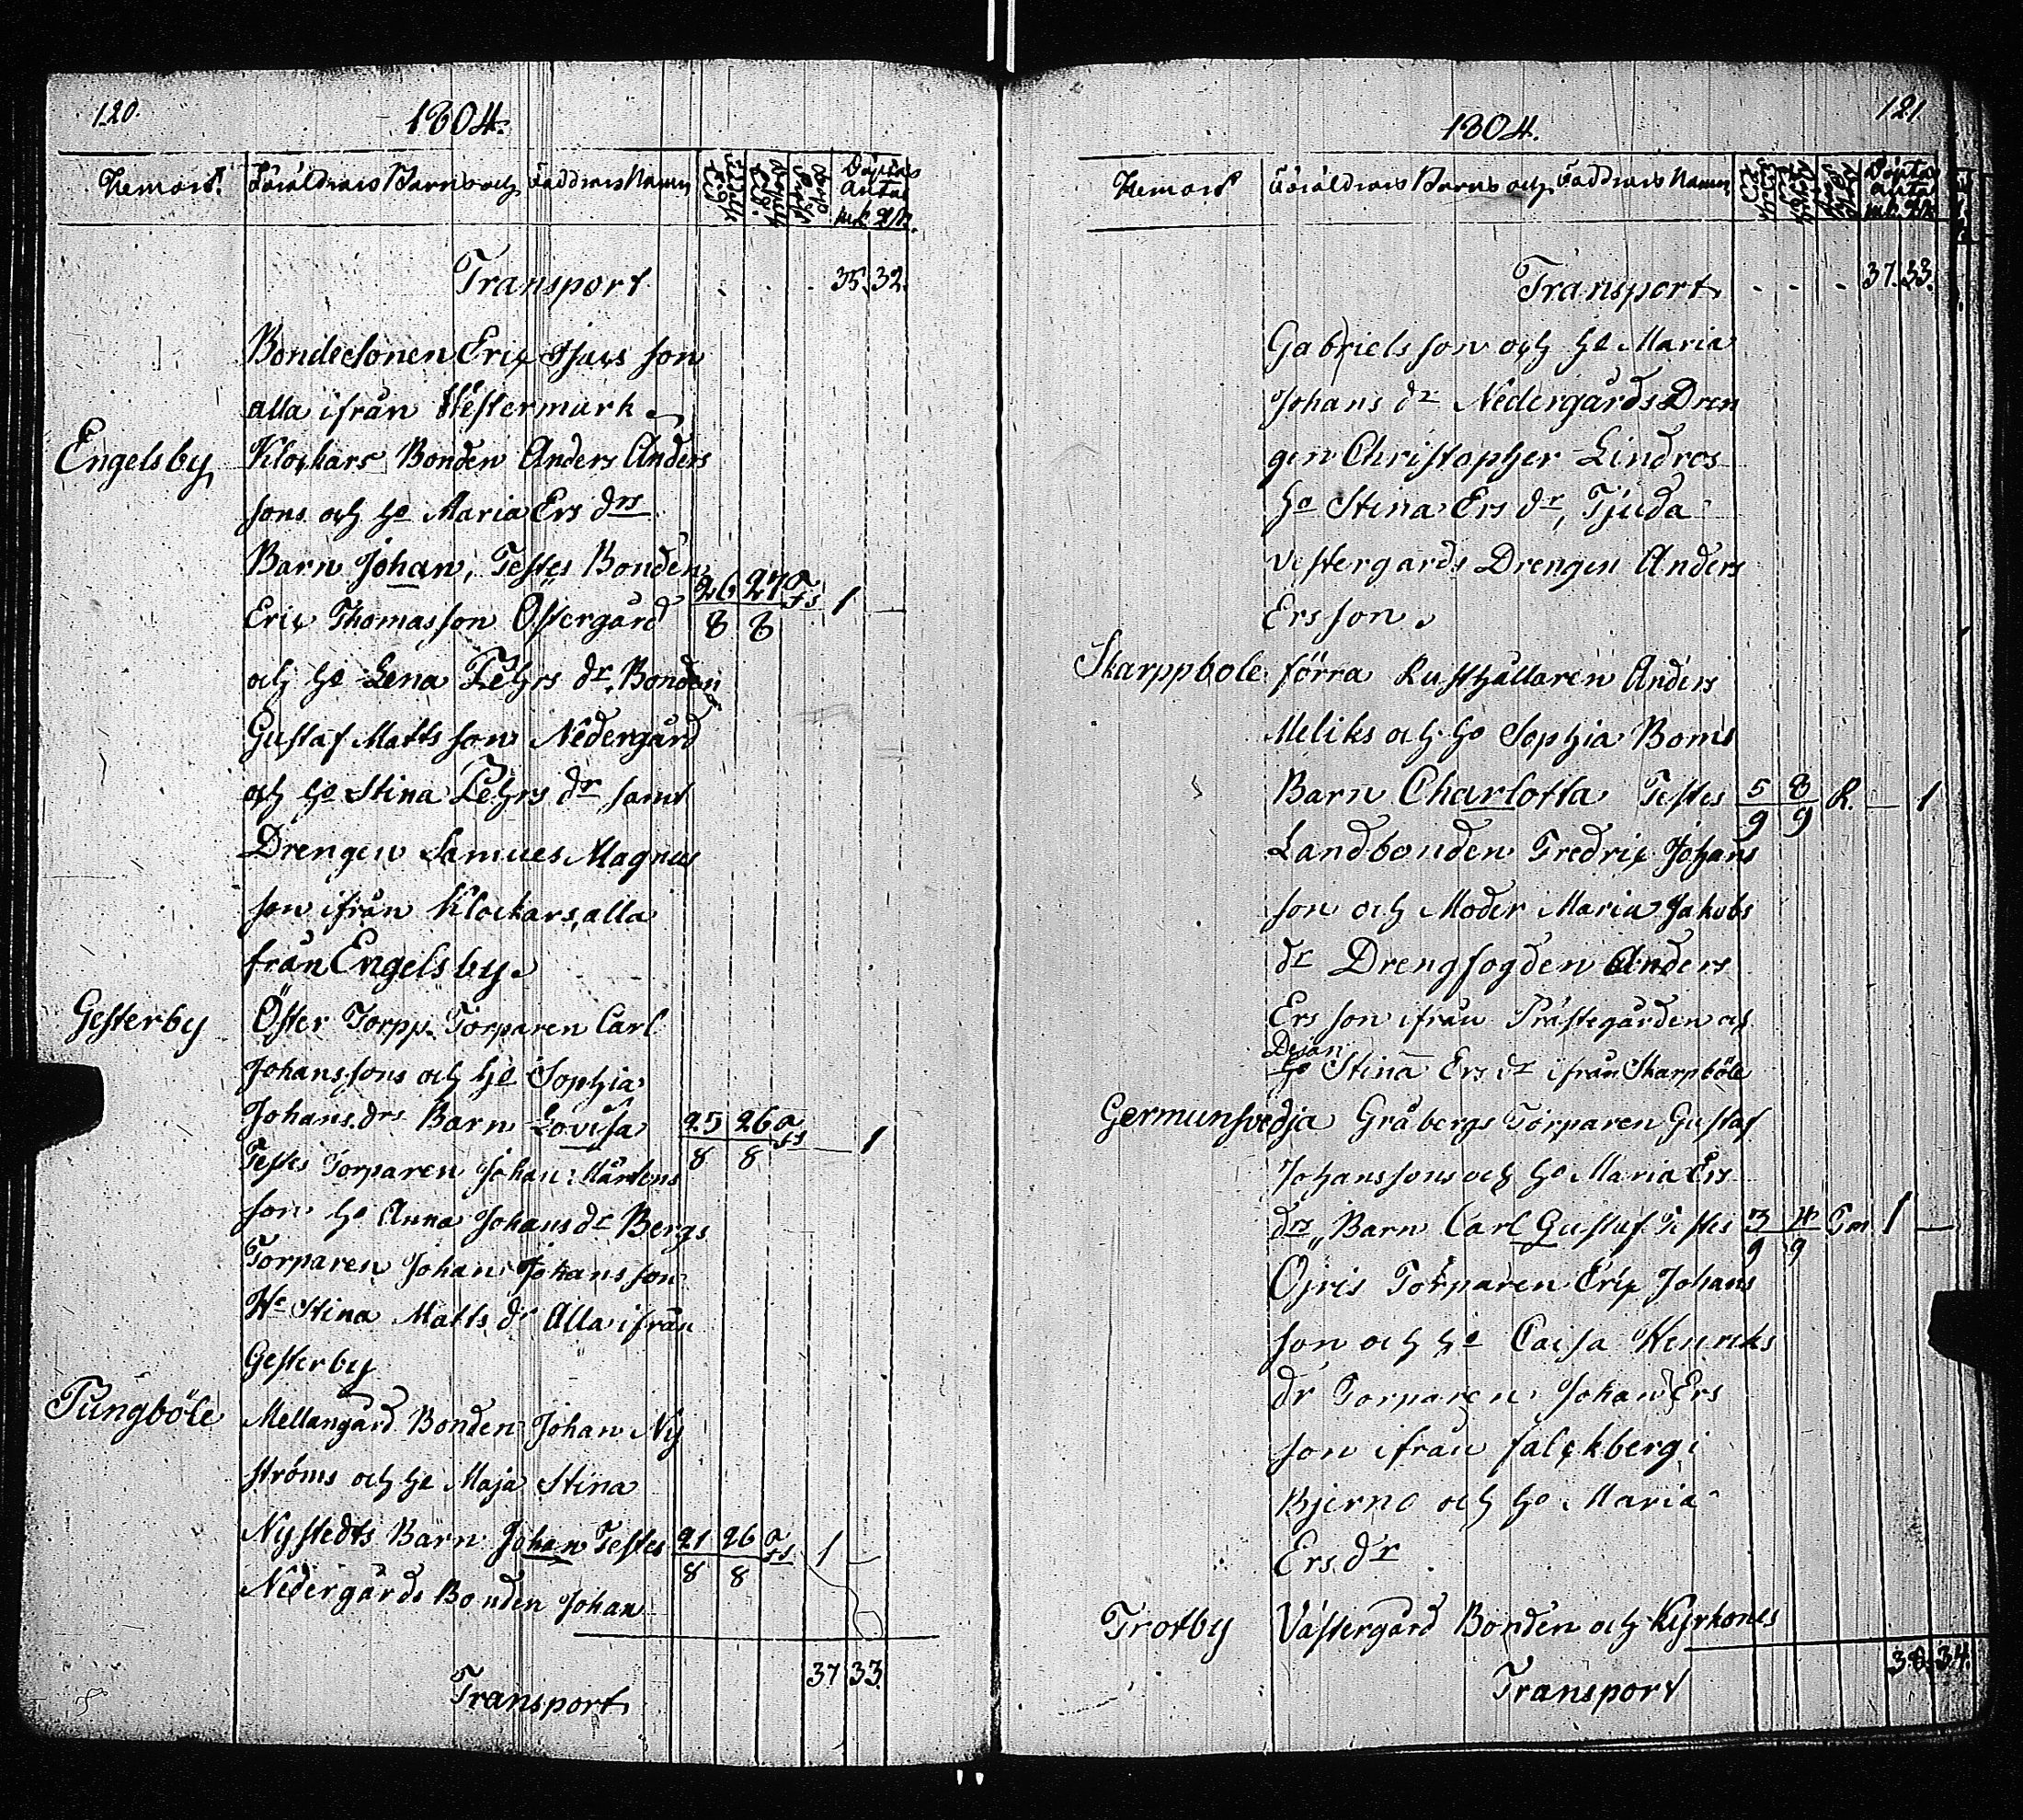 120.
1804.
Hemort. Föräldrars Barns och Faddrars Namn Döptas Antal mk. qk.
Transport . . . 35. 32.
Bondesonen Eric Isacs son
alla ifrån Westermark.
Engelsby Klockars Bonden Anders Anders
sons och ho Maria Ers drs
Barn Johan, Testes Bonden
Eric Thomasson Östergård 26/8 27/8 1 —
och ho Lena Zehrs dr, Bonden
Gustaf Matts son Nedergård
och ho Stina Zehrs dr samt
Drengen Samuel Magnus
son ifrån Klockars, alla
från Engelsby.
Gesterby Öster Torpp Torparen Carl
Johanssons och ho Sophia
Johans drs Barn Lovisa 25/8 26/8 — 1
Testes Torparen Johan Mårtens
son ho Anna Johans dr Bergs
Torparen Johan Johans son
Ho Stina Matts dr Alla ifrån
Gesterby
Pungböle Mellangård Bonden Johan Ny
ströms och ho Maja Stina
Nystedts Barn Johan Testes 21/8 26/8 1 —
Nedergårds Bonden Johan
37 33.
Transport
121
1804.
Hemort Föräldrars Barns och Faddrars Namn Döpta antal mk. qk.
Transport . . . 37. 33.
Gabriels son och ho Maria
Johans dr Nedergårds Dren
gen Christopher Lindros
ho Stina Ers dr, Tjuda
vestergards Drengen Anders
Ers son.
Skarppbole förra Rusthållaren Anders
Meliks och ho Sophia Boms
Barn Charlotta Testes 5/9 8/9 R. — 1
Landbonden Fredric Johans
son och Moder Maria Jakobs
dr Drengfogden Anders
Ers son ifrån Prästegården och
Dejan
ho Stina Ers dr ifrån Skarpböle
Germunsvedja Gråbergs Torparen Gustaf
Johanssons och ho Maria Ers
drs Barn Carl Gustaf Testes 3/9 4/9 Tm 1 —
Ojris Torparen Eric Johans
son och ho Caisa Henriks
dr Torparen Johan Ers
son ifrån falckberg i
Bjerno och ho Maria
Ers dr
Trotby Västergård Bonden och Kyrkones
38. 34.
Transport